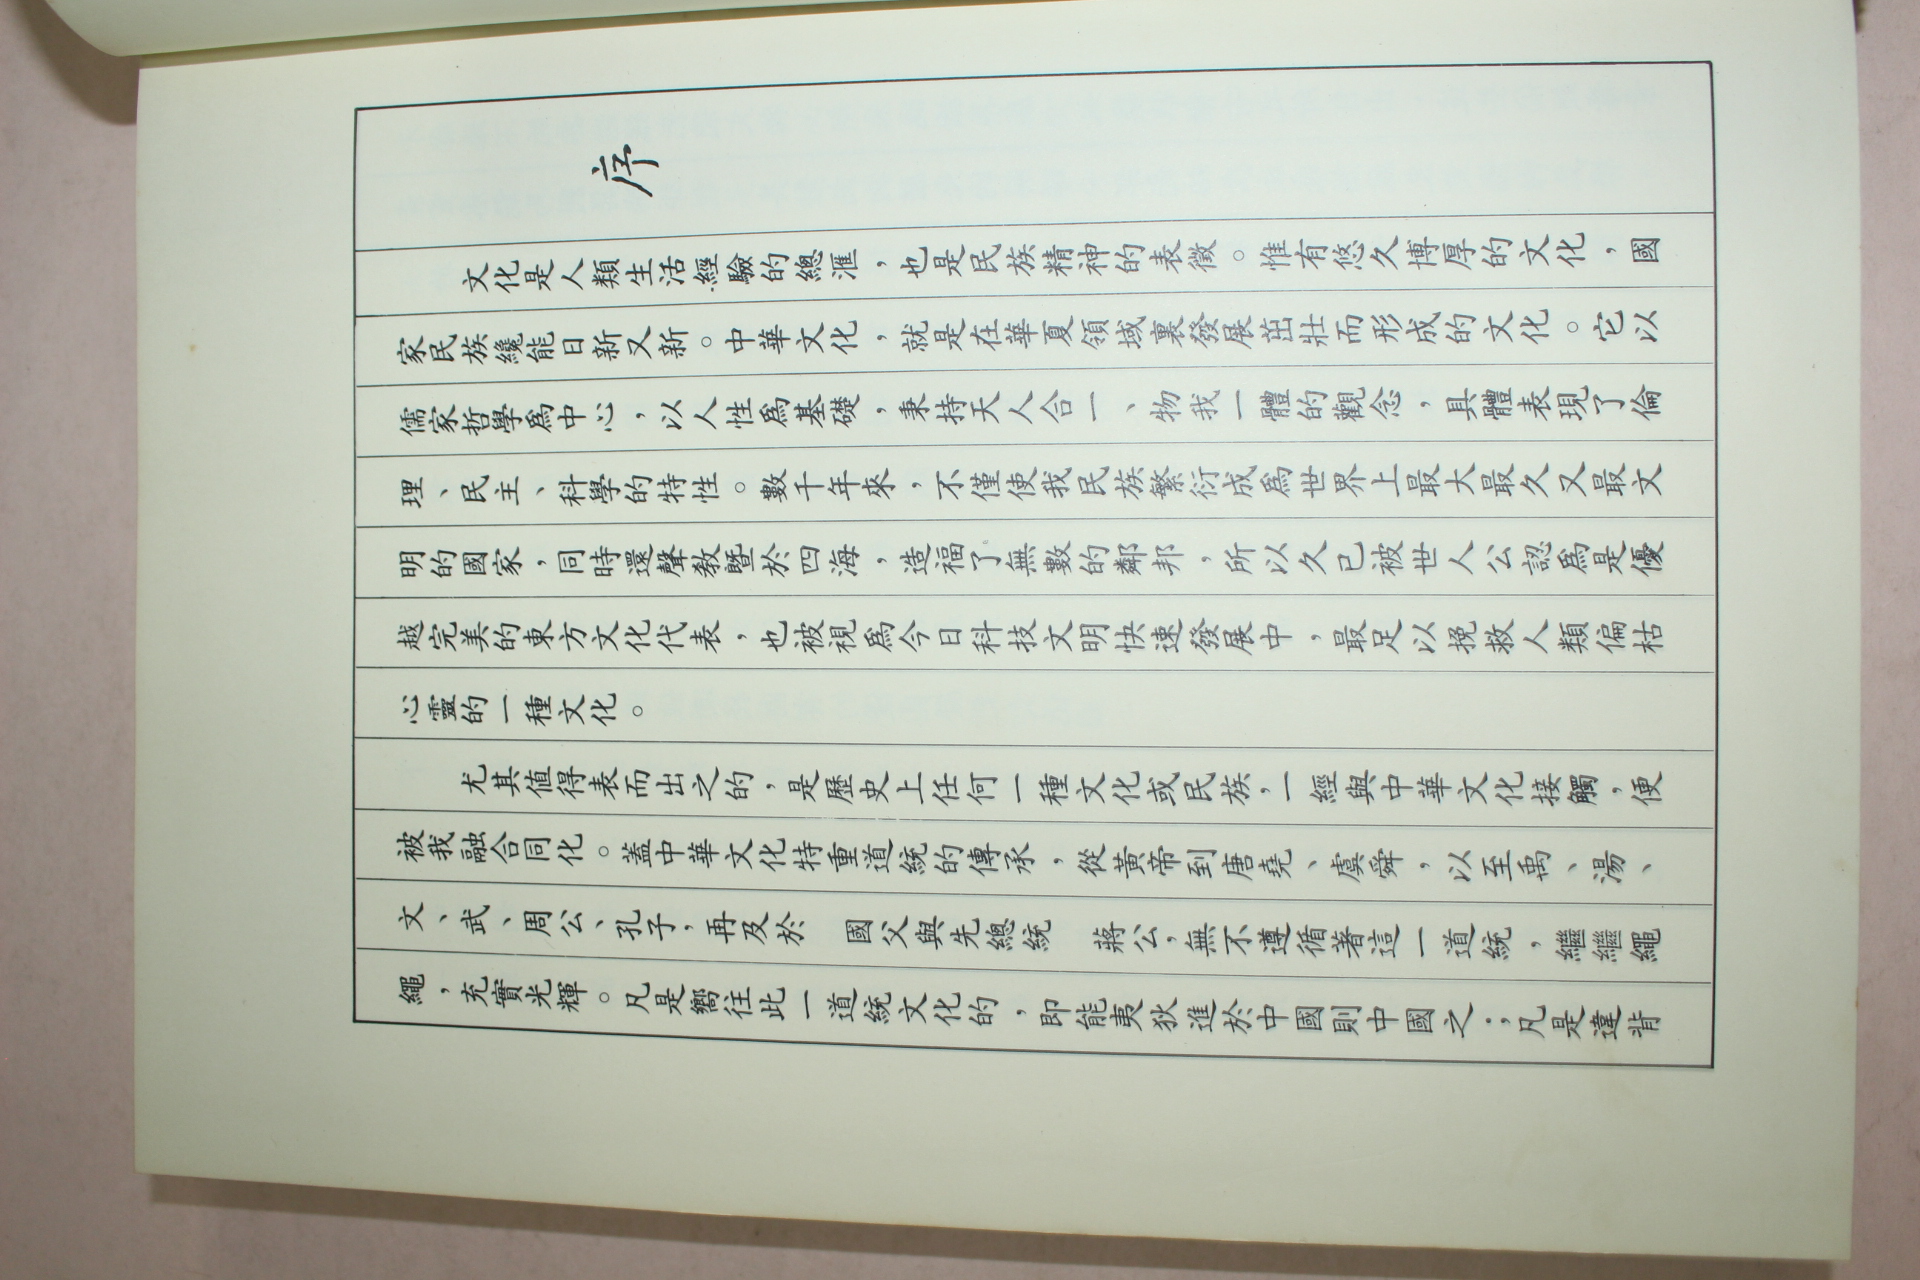 序
文化是人類生活經驗的總滙，也是民族精神的表徵。惟有悠久博厚的文化，國
家民族纔能日新又新。中華文化，就是在華夏領域裏發展茁壯而形成的文化。它以
儒家哲學為中心，以人性為基礎，秉持天人合一、物我一體的觀念，具體表現了倫
理、民主、科學的特性。數千年來，不僅使我民族繁衍成為世界上最大最久又最文
明的國家，同時還聲教暨於四海，造福了無數的鄰邦，所以久已被世人公認為是優
越完美的東方文化代表，也被視為今日科技文明快速發展中，最足以挽救人類偏枯
心靈的一種文化。
尤其值得表而出之的，是歷史上任何一種文化或民族，一經與中華文化接觸，便
被我融合同化。蓋中華文化特重道統的傳承，從黃帝到唐堯、虞舜，以至禹、湯、
文、武、周公、孔子，再及於　國父與先總統　蔣公，無不遵循著這一道統，繼繼繩
繩，充實光輝。凡是嚮往此一道統文化的，即能夷狄進於中國則中國之；凡是違背